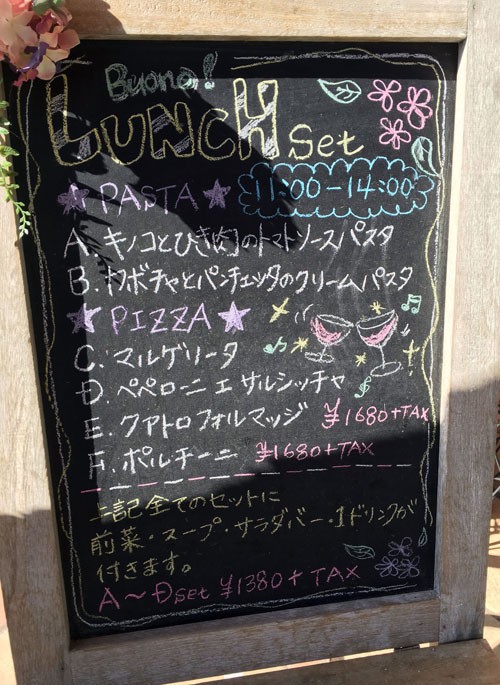 Buono!
LUNCH Set
11:00-14:00
★ PASTA ★
A. キノコとひき肉のトマトソースパスタ
B. カボチャとパンチェッタのクリームパスタ
★ PIZZA ★
C. マルゲリータ
D. ペペローニ エ サルシッチャ
E. クアトロフォルマッジ ¥1680+TAX
F. ポルチーニ ¥1680+TAX
上記全てのセットに
前菜・スープ・サラダバー・1ドリンクが
付きます。
A～Dset ¥1380+TAX